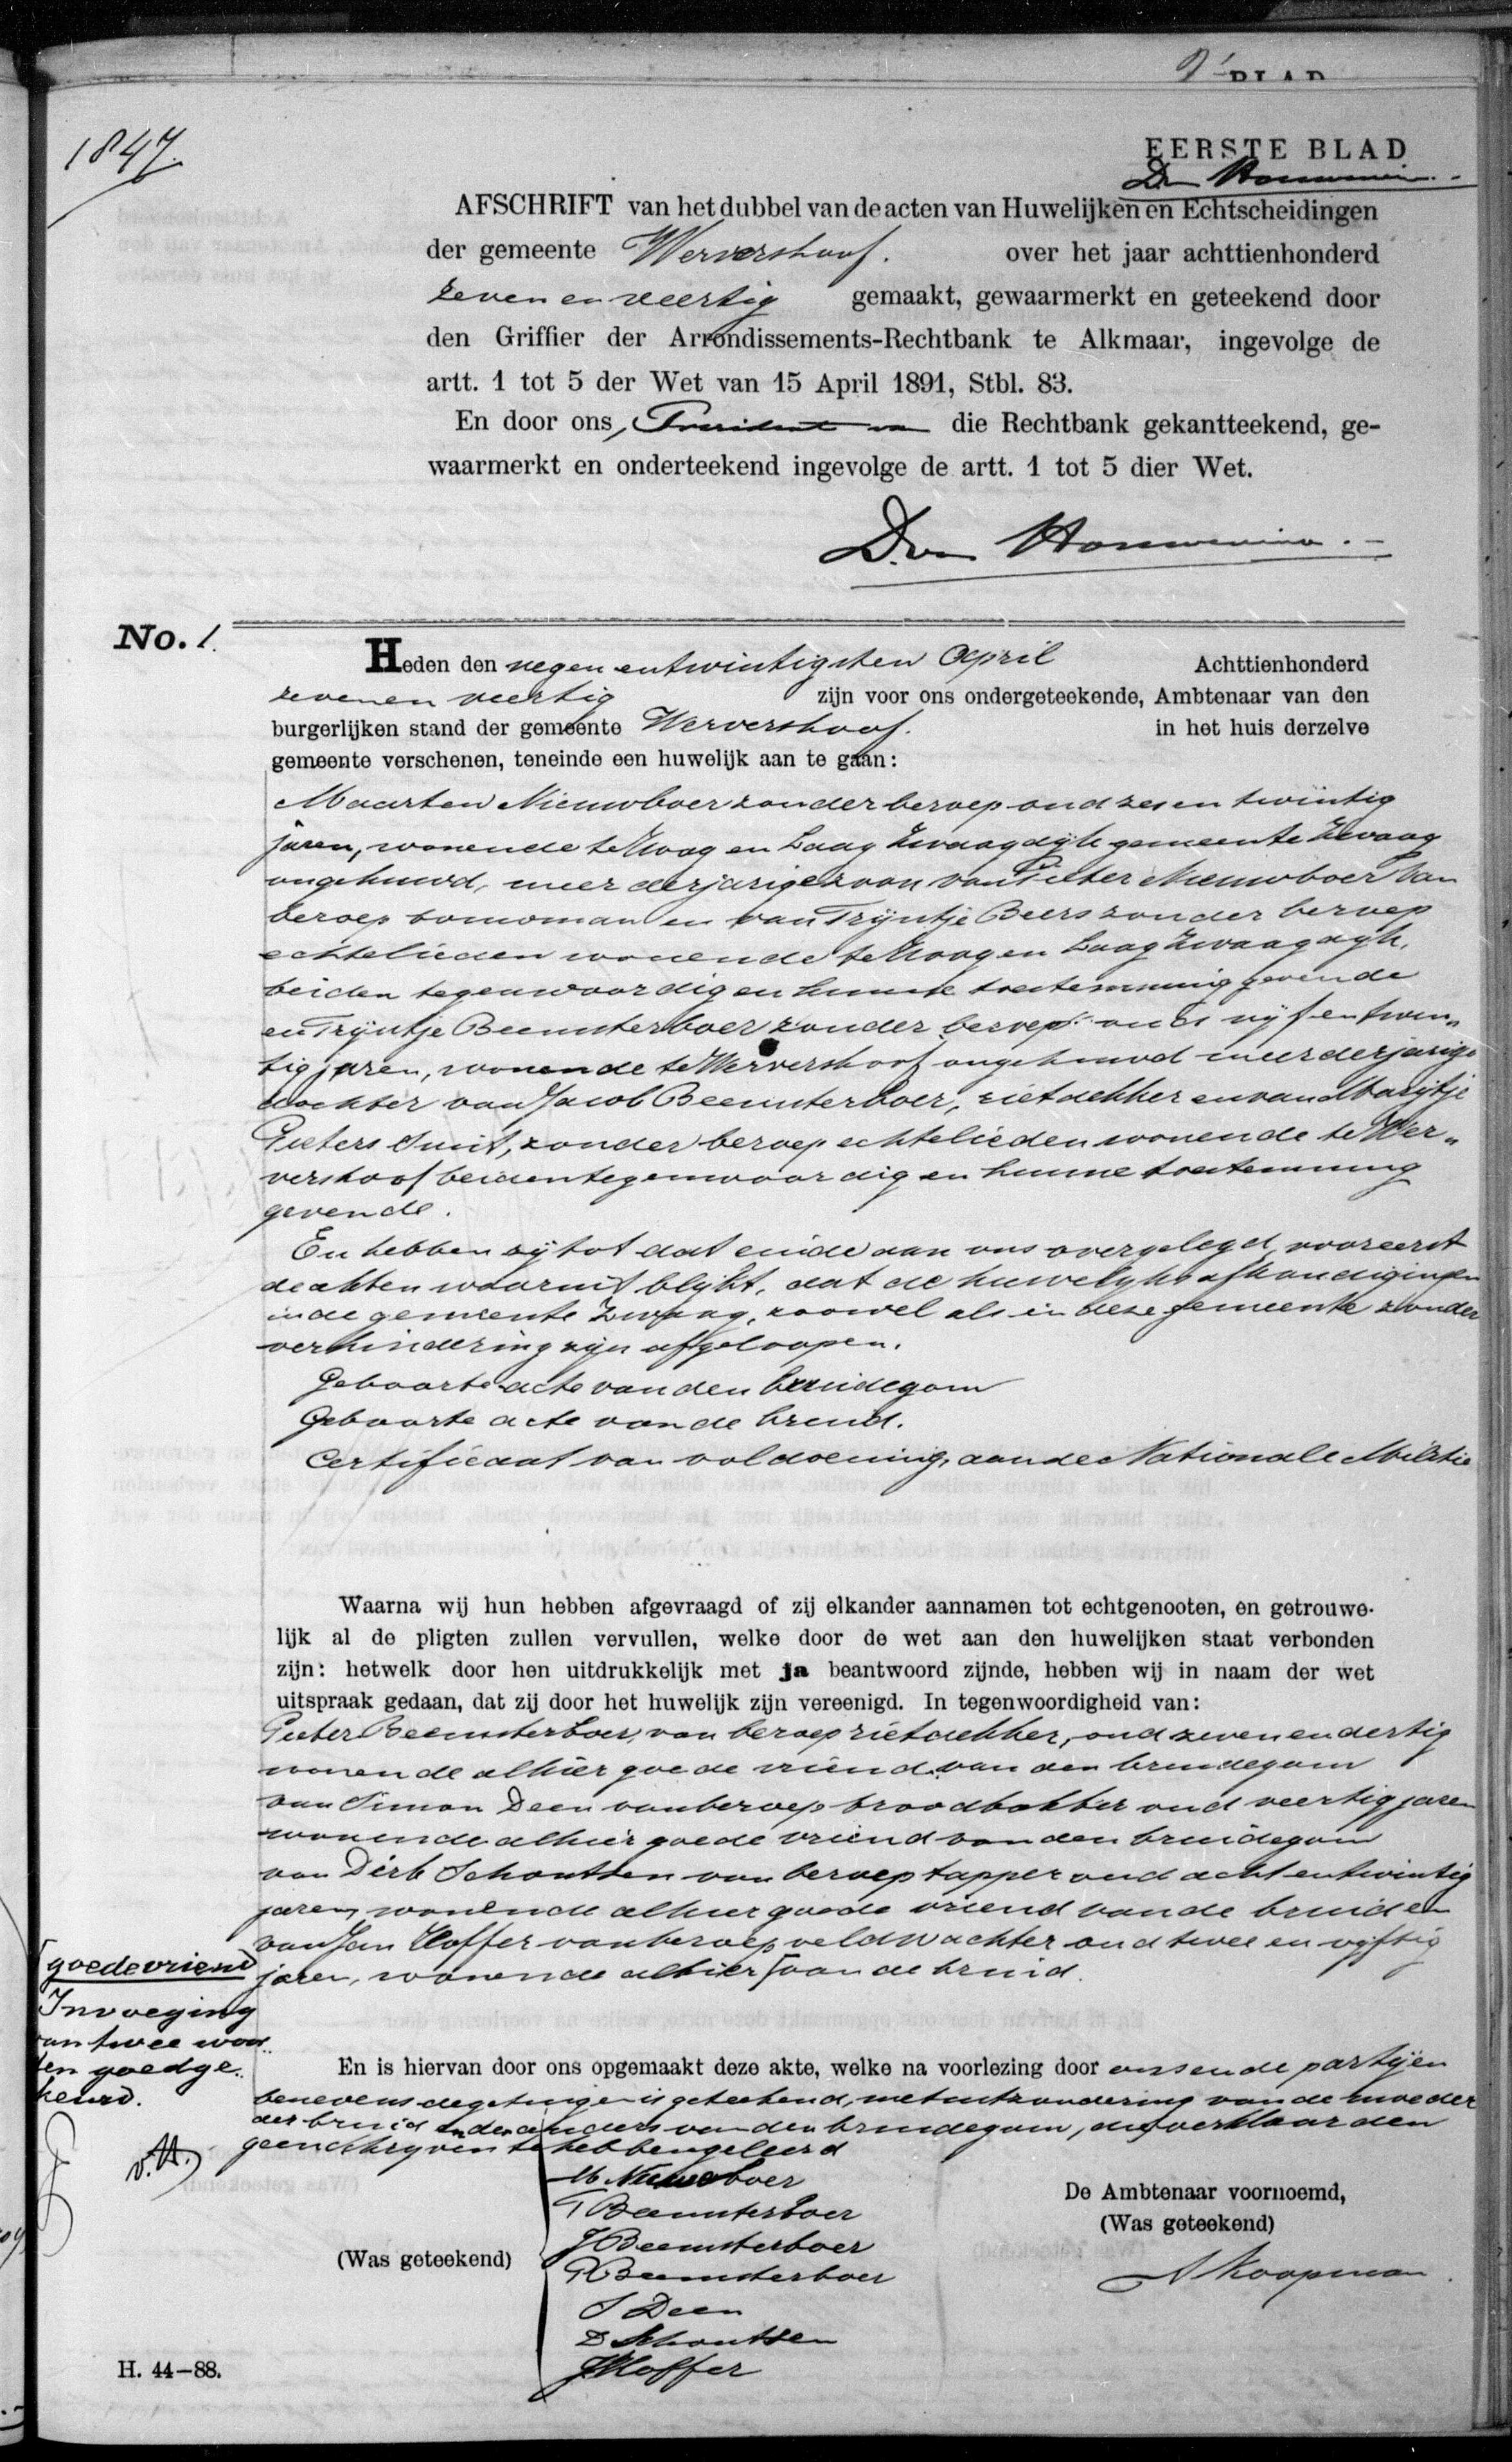 2e BLAD
1847.
EERSTE BLAD
AFSCHRIFT van het dubbel van de acten van Huwelijken en Echtscheidingen
der gemeente Wervershoof. over het jaar achttienhonderd
zeven en veertig gemaakt, gewaarmerkt en geteekend door
den Griffier der Arrondissements-Rechtbank te Alkmaar, ingevolge de
artt. 1 tot 5 der Wet van 15 April 1891, Stbl. 83.
En door ons, President van die Rechtbank gekantteekend, ge-
waarmerkt en onderteekend ingevolge de artt. 1 tot 5 dier Wet.
No. 1.
Heden den negen en twintigsten April Achttienhonderd
zeven en veertig zijn voor ons ondergeteekende, Ambtenaar van den
burgerlijken stand der gemeente Wervershoof. in het huis derzelve
gemeente verschenen, teneinde een huwelijk aan te gaan:
Maarten Nieuwboer zonder beroep oud zes en twintig
jaren, wonende te Hoog en Laag Zwaagdijk gemeente Zwaag
ongehuwd, meerderjarige zoon van Pieter Nieuwboer van
beroep bouwman en van Trijntje Beers zonder beroep
echtelieden wonende te Hoog en Laag Zwaagdijk,
beiden tegenwoordig en hunne toestemming gevende
en Trijntje Beemsterboer zonder beroep oud vijf en twin„
tig jaren, wonende te Wervershoof ongehuwd meerderjarige
dochter van Jacob Beemsterboer, rietdekker en van Marijtje
Pieters Smit, zonder beroep echtelieden wonende te Wer„
vershoof beiden tegenwoordig en hunne toestemming
gevende.
En hebben zij tot dat einde aan ons overgelegd, vooreerst
de akten waaruit blijkt, dat de huwelijks afkondigingen
in de gemeente Zwaag, zoowel als in deze gemeente zonder
verhindering zijn afgeloopen.
Geboorte acte van den bruidegom
Geboorte acte van de bruid.
Certificaat van voldoening aan de Nationale Militie
Waarna wij hun hebben afgevraagd of zij elkander aannamen tot echtgenooten, en getrouwe-
lijk al de pligten zullen vervullen, welke door de wet aan den huwelijken staat verbonden
zijn: hetwelk door hen uitdrukkelijk met ja beantwoord zijnde, hebben wij in naam der wet
uitspraak gedaan, dat zij door het huwelijk zijn vereenigd. In tegenwoordigheid van:
Pieter Beemsterboer, van beroep rietdekker, oud zeven en dertig
wonende alhier goede vriend van den bruidegom
van Simon Deen van beroep broodbakker oud veertig jaren
wonende alhier goede vriend van den bruidegom
van Dirk Schoutsen van beroep tapper oud acht en twintig
jaren, wonende alhier goede vriend van de bruid en
van Jan Hoffer van beroep veldwachter oud twee en vijftig
jaren, wonende alhier [van de bruid.
[goede vriend
Invoeging
van twee woor„
den goedge„
keurd.
v.H.
En is hiervan door ons opgemaakt deze akte, welke na voorlezing door ons en de partijen
benevens de getuigen is geteekend, met uitzondering van de moeder
der bruid en de ouders van den bruidegom, die verklaarden
geen schrijven te hebben geleerd
M. Nieuwboer
T Beemsterboer
J Beemsterboer
P Beemsterboer
S Deen
D Schoutsen
J Hoffer
(Was geteekend)
De Ambtenaar voornoemd,
(Was geteekend)
Koopman
H. 44–88.